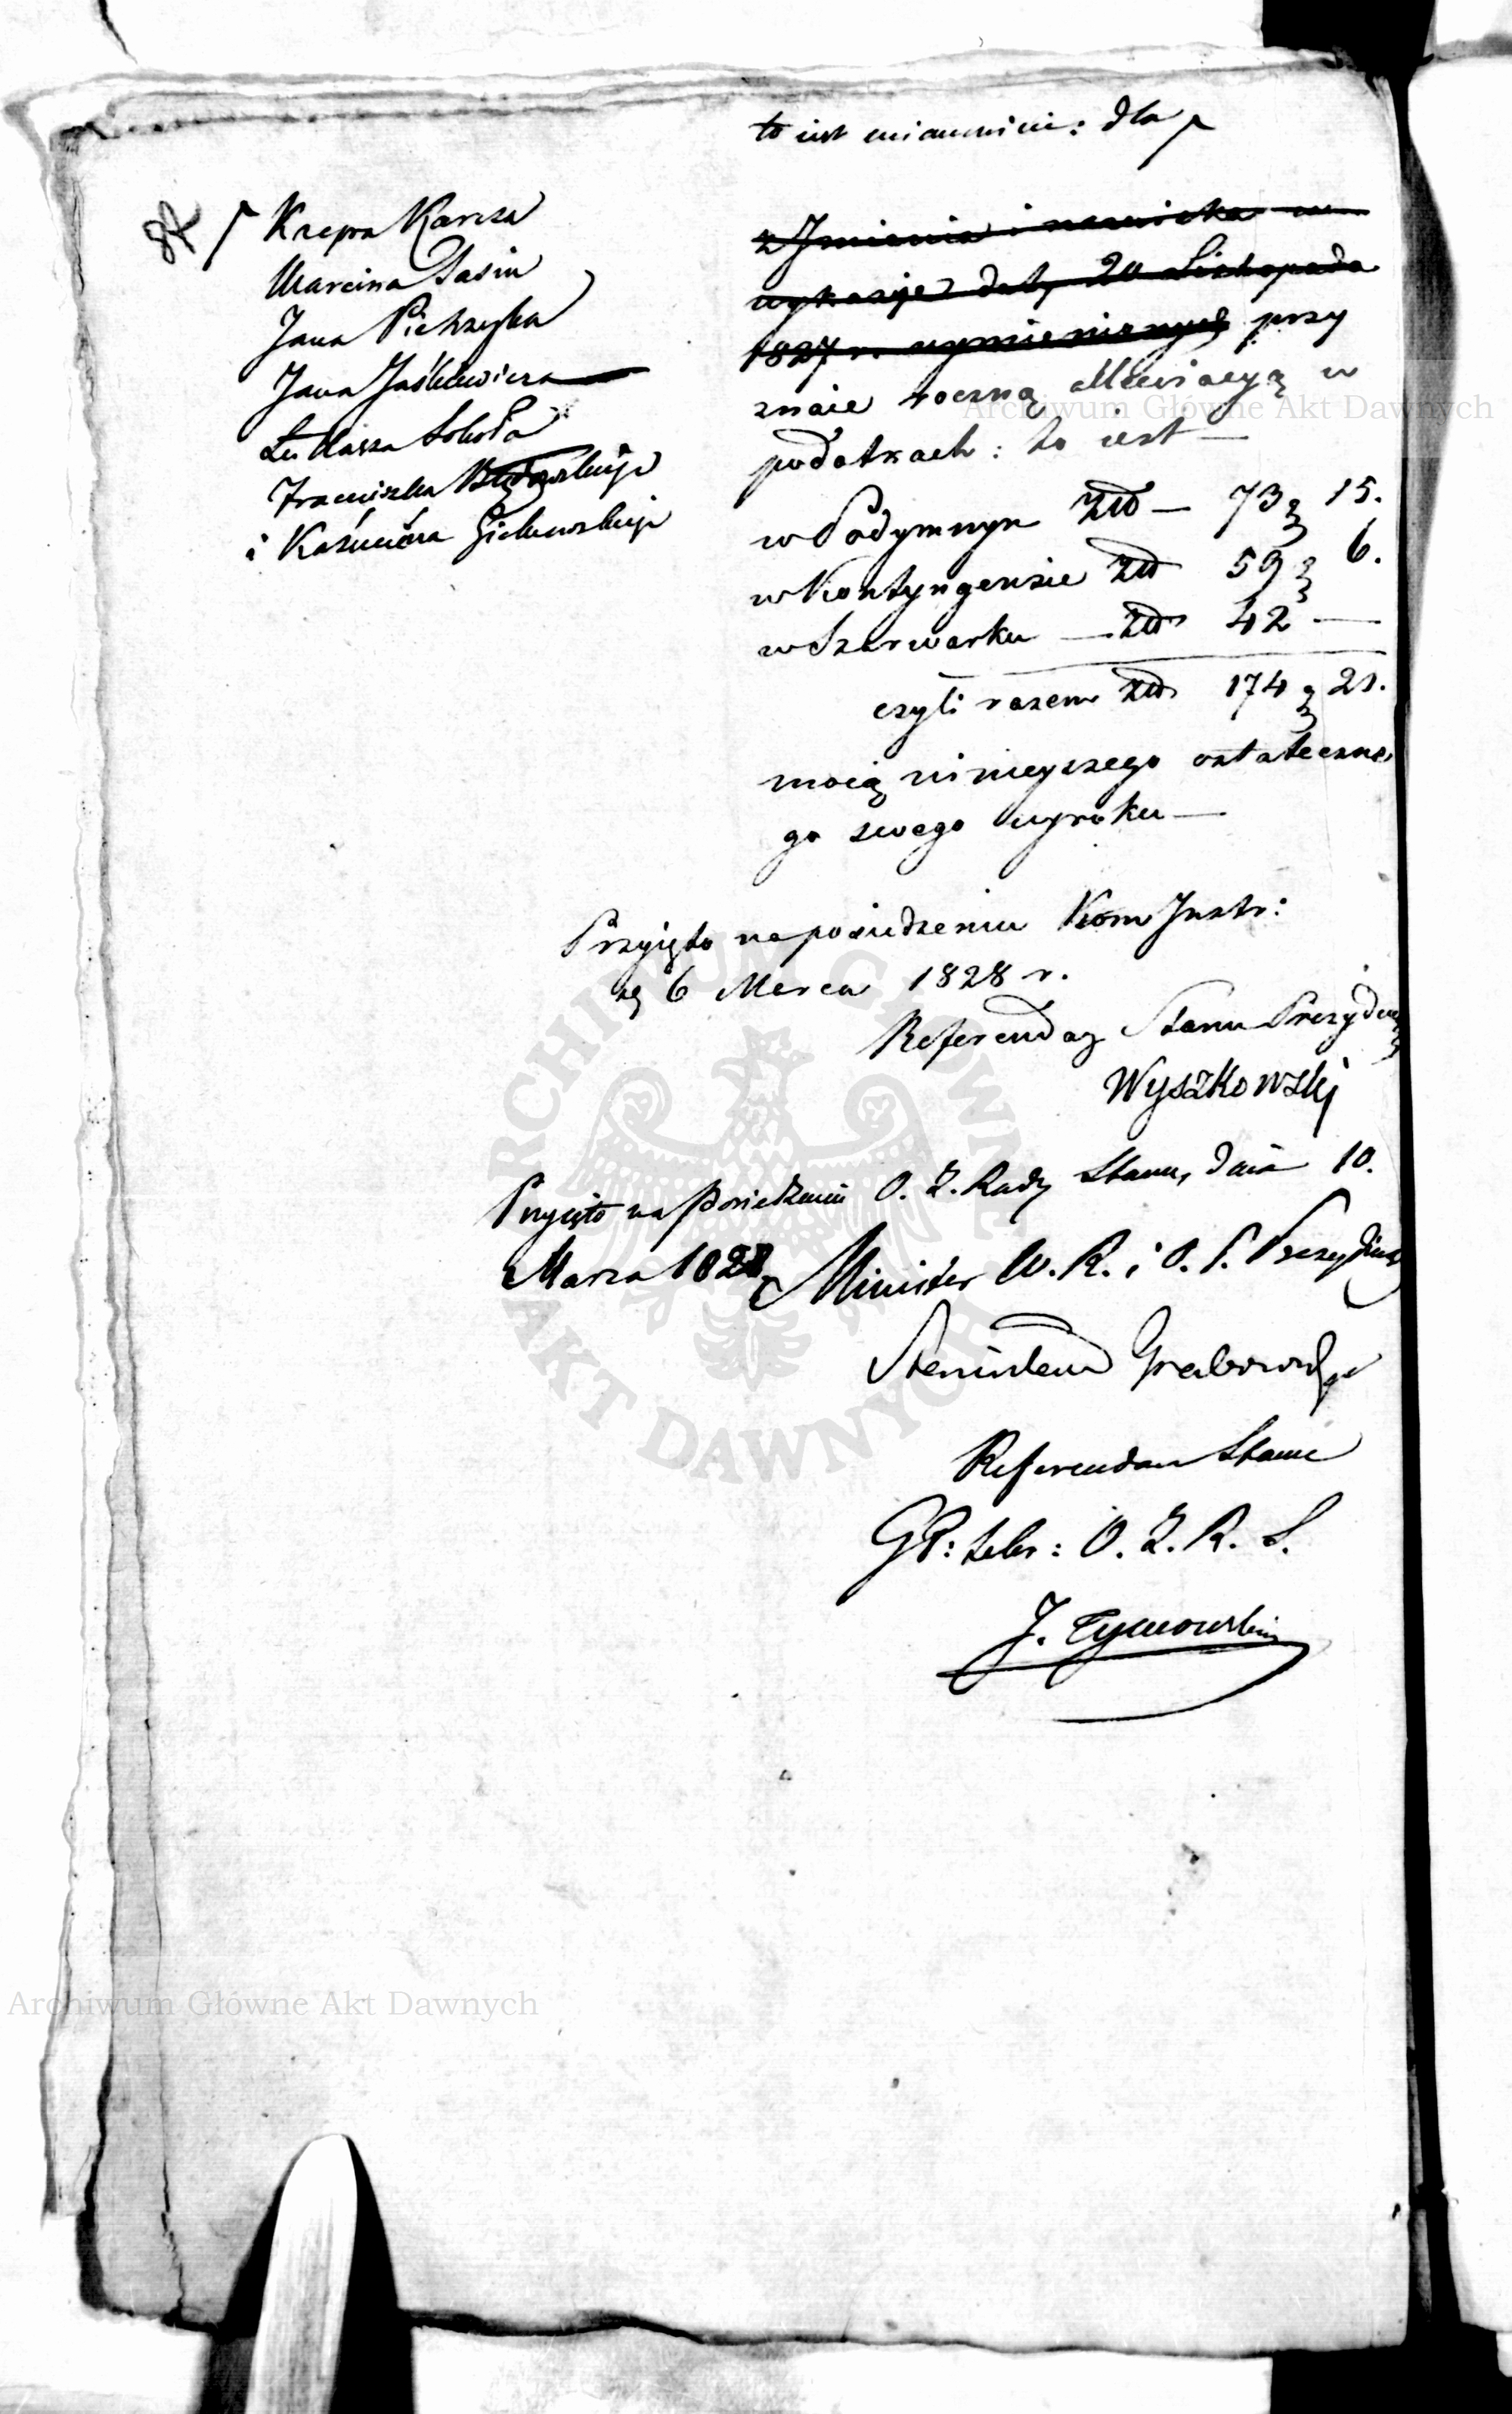 to iest mianowicie: dla
Karcza
Marcina Sasin
Jana Pietrzyka
Jana Jaśkiewicza
Łukasza Sokoła
Franciszka
i Kaźmierza
z Jmienia i nazwiska w
wykazie daty 20 Listopada
1827 r. wymienionych przy
znaie roczną allewiacyą w
podatkach: to iest —
w Podymnym Złł — 73 g 15.
w Kontyngensie Złł 59 g 6.
w Szarwarku — Złł 42 —
czyli razem Złł 174 g 21.
mocą ninieyszego ostateczne
go swego wyroku —
Przyięto na posiedzeniu Kom Jnstr:
6 Marca 1828 r.
Referendarz Stanu Prezyduiący
Wyszkowski
Przyięto na Posiedzeniu O. Z. Rady Stanu, dnia 10.
Marca 1828. Minister W. R. i O. P. Prezyduiący
Stanisław Grabowski
Referendarz Stanu
O. Z. R. S.
J. Tymowski
Archiwum Główne Akt Dawnych
ARCHIWUM GŁÓWNE
AKT DAWNYCH
Archiwum Główne Akt Dawnych